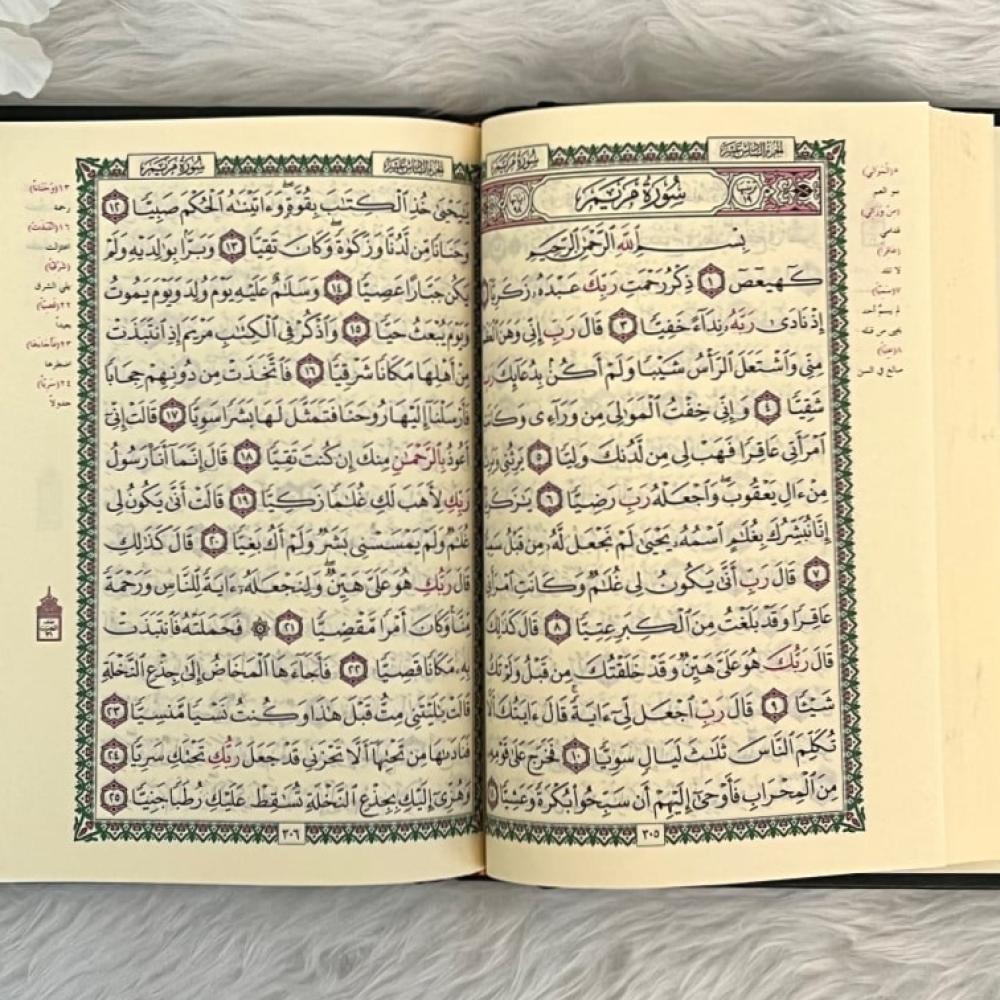 الجزء السادس عشر
سورة مريم
سُورَةُ مَرْيَمَ
بِسْمِ ٱللَّهِ ٱلرَّحْمَٰنِ ٱلرَّحِيمِ
كٓهيعٓصٓ ١ ذِكْرُ رَحْمَتِ رَبِّكَ عَبْدَهُۥ زَكَرِيَّا
إِذْ نَادَىٰ رَبَّهُۥ نِدَآءً خَفِيًّا ٣ قَالَ رَبِّ إِنِّى وَهَنَ
مِنِّى وَٱشْتَعَلَ ٱلرَّأْسُ شَيْبًا وَلَمْ أَكُنۢ بِدُعَآئِكَ
شَقِيًّا ٤ وَإِنِّى خِفْتُ ٱلْمَوَٰلِىَ مِن وَرَآءِى
ٱمْرَأَتِى عَاقِرًا فَهَبْ لِى مِن لَّدُنكَ وَلِيًّا ٥ يَرِثُنِى
مِنْ ءَالِ يَعْقُوبَ ۖ وَٱجْعَلْهُ رَبِّ رَضِيًّا ٦
إِنَّا نُبَشِّرُكَ بِغُلَٰمٍ ٱسْمُهُۥ يَحْيَىٰ لَمْ نَجْعَل لَّهُۥ مِن قَبْلُ
٧ قَالَ رَبِّ أَنَّىٰ يَكُونُ لِى غُلَٰمٌ وَكَانَتِ
عَاقِرًا وَقَدْ بَلَغْتُ مِنَ ٱلْكِبَرِ عِتِيًّا ٨ قَالَ كَذَٰلِكَ
قَالَ رَبُّكَ هُوَ عَلَىَّ هَيِّنٌ وَقَدْ خَلَقْتُكَ مِن قَبْلُ وَلَمْ تَكُ
شَيْـًٔا ٩ قَالَ رَبِّ ٱجْعَل لِّىٓ ءَايَةً ۚ قَالَ ءَايَتُكَ
تُكَلِّمَ ٱلنَّاسَ ثَلَٰثَ لَيَالٍ سَوِيًّا ١٠ فَخَرَجَ عَلَىٰ
مِنَ ٱلْمِحْرَابِ فَأَوْحَىٰٓ إِلَيْهِمْ أَن سَبِّحُوا۟ بُكْرَةً وَعَشِيًّا
٣٠٥
الجزء السادس عشر
سورة مريم
يَٰيَحْيَىٰ خُذِ ٱلْكِتَٰبَ بِقُوَّةٍ ۖ وَءَاتَيْنَٰهُ ٱلْحُكْمَ صَبِيًّا ١٢
وَحَنَانًا مِّن لَّدُنَّا وَزَكَوٰةً ۖ وَكَانَ تَقِيًّا ١٣ وَبَرًّۢا بِوَٰلِدَيْهِ وَلَمْ
يَكُن جَبَّارًا عَصِيًّا ١٤ وَسَلَٰمٌ عَلَيْهِ يَوْمَ وُلِدَ وَيَوْمَ يَمُوتُ
وَيَوْمَ يُبْعَثُ حَيًّا ١٥ وَٱذْكُرْ فِى ٱلْكِتَٰبِ مَرْيَمَ إِذِ ٱنتَبَذَتْ
مِنْ أَهْلِهَا مَكَانًا شَرْقِيًّا ١٦ فَٱتَّخَذَتْ مِن دُونِهِمْ حِجَابًا
فَأَرْسَلْنَآ إِلَيْهَا رُوحَنَا فَتَمَثَّلَ لَهَا بَشَرًا سَوِيًّا ١٧ قَالَتْ إِنِّىٓ
أَعُوذُ بِٱلرَّحْمَٰنِ مِنكَ إِن كُنتَ تَقِيًّا ١٨ قَالَ إِنَّمَآ أَنَا۠ رَسُولُ
رَبِّكِ لِأَهَبَ لَكِ غُلَٰمًا زَكِيًّا ١٩ قَالَتْ أَنَّىٰ يَكُونُ لِى
غُلَٰمٌ وَلَمْ يَمْسَسْنِى بَشَرٌ وَلَمْ أَكُ بَغِيًّا ٢٠ قَالَ كَذَٰلِكِ
قَالَ رَبُّكِ هُوَ عَلَىَّ هَيِّنٌ ۖ وَلِنَجْعَلَهُۥٓ ءَايَةً لِّلنَّاسِ وَرَحْمَةً
مِّنَّا ۚ وَكَانَ أَمْرًا مَّقْضِيًّا ٢١ ۞ فَحَمَلَتْهُ فَٱنتَبَذَتْ
بِهِۦ مَكَانًا قَصِيًّا ٢٢ فَأَجَآءَهَا ٱلْمَخَاضُ إِلَىٰ جِذْعِ ٱلنَّخْلَةِ
قَالَتْ يَٰلَيْتَنِى مِتُّ قَبْلَ هَٰذَا وَكُنتُ نَسْيًا مَّنسِيًّا ٢٣
فَنَادَىٰهَا مِن تَحْتِهَآ أَلَّا تَحْزَنِى قَدْ جَعَلَ رَبُّكِ تَحْتَكِ سَرِيًّا ٢٤
وَهُزِّىٓ إِلَيْكِ بِجِذْعِ ٱلنَّخْلَةِ تُسَٰقِطْ عَلَيْكِ رُطَبًا جَنِيًّا ٢٥
٣٠٦